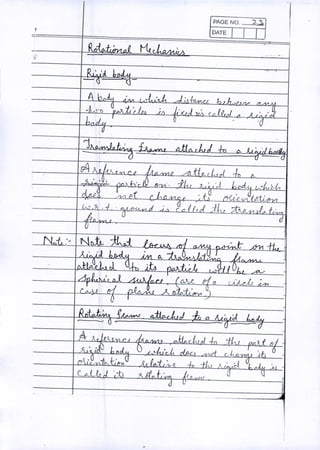 PAGE NO.
DATE
Rotational Mechanics
Rigid body
A body in which distance between any
two particles is fixed is called a rigid
body.
Translating frame attached to a rigid body
A reference frame attached to a
particle on the rigid body which
does not change its orientation
w.r.t ground is called the translating
frame.
Note:- Note that locus of any point on the
rigid body in a translating frame
attached to its particle will be a
spherical surface. (arc of a circle in
case of plane rotation)
Rotating frame attached to a rigid body
A reference frame attached to the part of
rigid body which does not change its
orientation relative to the rigid body is
called its rotating frame.